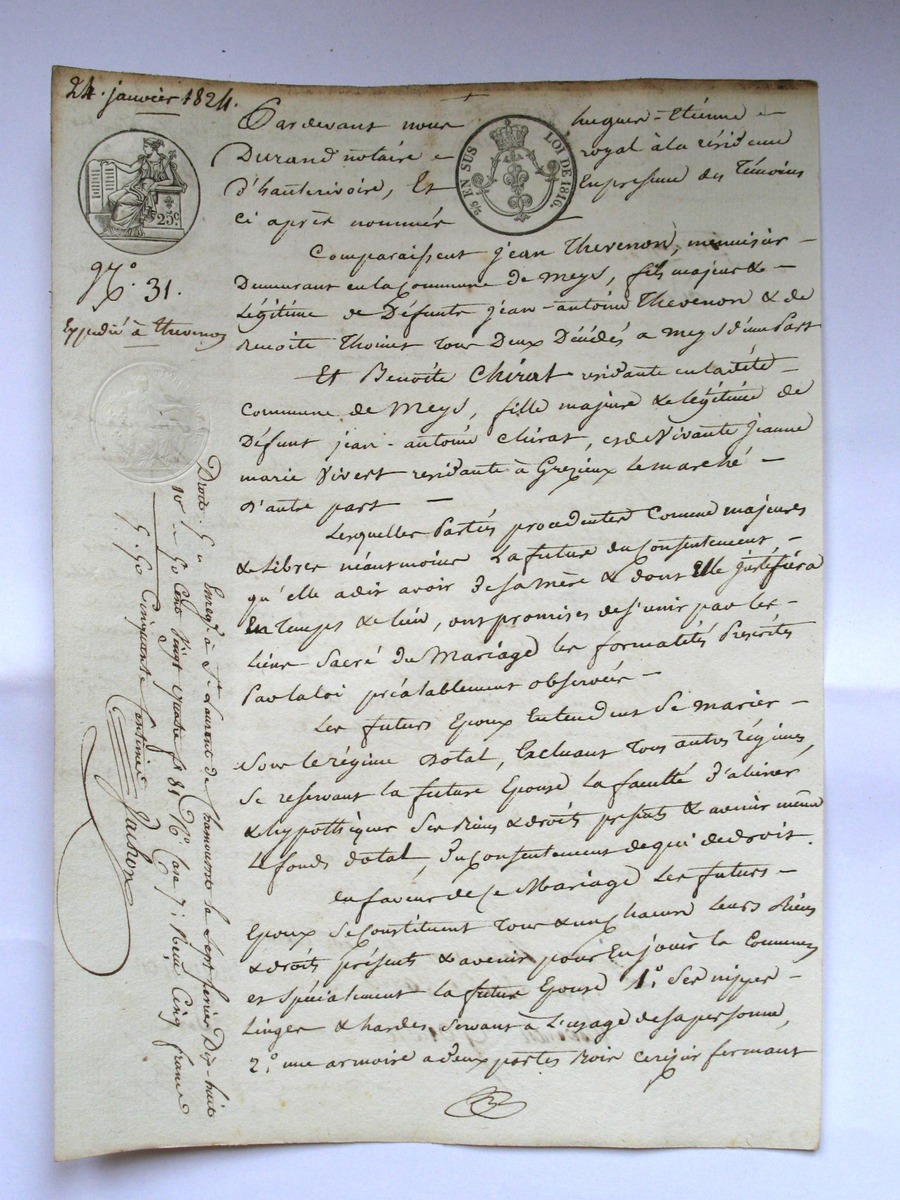 24. janvier 1824.
Pardevant nous hugues-Etienne
Durand notaire royal à la résidence
d'hauterivoire, Et En presence des Témoins
ci après nommés
25 EN SUS LOI DE 1816.
25.c
N.° 31.
Expedié à thevenon
Comparaissent jean Thevenon, menuisier
Demeurant en la Commune de Meys, fils majeur &
Légitime de Défunts jean-antoine Thevenon & de
Benoite Thoinet tous Deux Décédés a Meys d'une Part
Et Benoîte Chirat residante en la dite
Commune de Meys, fille majeure & légitime de
Défunt jean-antoine Chirat, et de Vivante jeanne
marie Vivert residante à Grezieux le marché
d'autre part
Lesquelles Parties procedentes Comme majeures
& Libres néantmoins La future du Consentement
qu'elle a dit avoir de sa Mère & dont Elle justifiera
En temps & lieu, ont promises de s'unir par les
liens Sacré du Mariage les formalités Prescrites
Par la loi préalablement observées
Les futurs Epoux Entendent Se marier
Sous le régime Dotal, Excluant Tous autres régimes,
Se reservant la future Epouse La faculté d'aliéner
& hypothéquer Ses Biens & droits présents & avenir même
Le fonds dotal, du Consentement de qui de droit.
En faveur de Ce Mariage Les futurs
Epoux Se Constituent Tous & un Chacun Leurs Biens
& droits présents & avenir pour En jouir
et Spécialement la future Epouse 1.° Ses nippes
Linges & hardes Servant à L'usage de sa personne,
2.° une armoire a deux portes Bois cerisier fermant
Enreg.é à S.t Laurent de Chamousset le Sept fevrier Dix-huit
Cent Vingt quatre f.° 81 V.° Case 7; Reçu Cinq francs
Cinquante Centimes